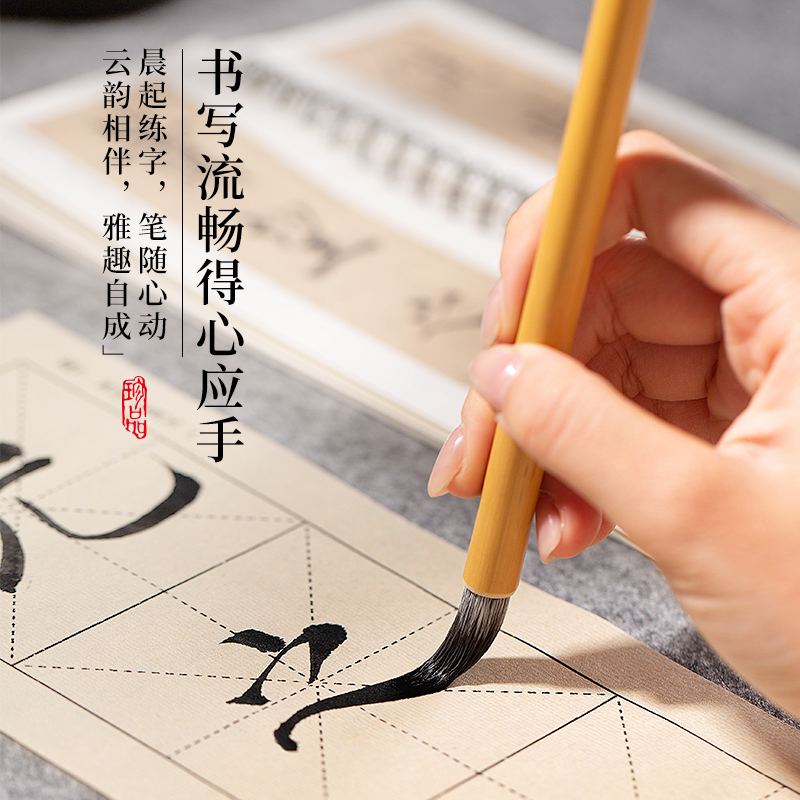 书写流畅得心应手
晨起练字，笔随心动
云韵相伴，雅趣自成」
珍品